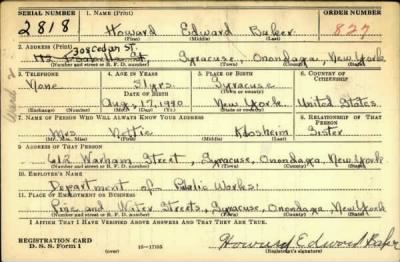 SERIAL NUMBER 1. NAME (Print) ORDER NUMBER
2818 Howard Edward Baker 827
(First) (Middle) (Last)
2. ADDRESS (Print)
308 Cedar St.
Syracuse, Onondaga, New York
(Number and street or R. F. D. number) (Town) (County) (State)
3. TELEPHONE 4. AGE IN YEARS 5. PLACE OF BIRTH 6. COUNTRY OF CITIZENSHIP
None yrs. Syracuse
DATE OF BIRTH (Town or county)
Aug. 17, New York United States
(Exchange) (Number) (Mo.) (Day) (Yr.) (State or country)
7. NAME OF PERSON WHO WILL ALWAYS KNOW YOUR ADDRESS 8. RELATIONSHIP OF THAT PERSON
Mrs Nettie Sister
(Mr., Mrs., Miss) (First) (Middle) (Last)
9. ADDRESS OF THAT PERSON
Street, Syracuse, Onondaga, New York
(Number and street or R. F. D. number) (Town) (County) (State)
10. EMPLOYER'S NAME
Department of Public Works
11. PLACE OF EMPLOYMENT OR BUSINESS
Pine and Water Streets, Syracuse, Onondaga, New York
(Number and street or R. F. D. number) (Town) (County) (State)
I AFFIRM THAT I HAVE VERIFIED ABOVE ANSWERS AND THAT THEY ARE TRUE.
REGISTRATION CARD
D. S. S. Form 1 (over) 16—17105 Howard Edward Baker
(Registrant's signature)